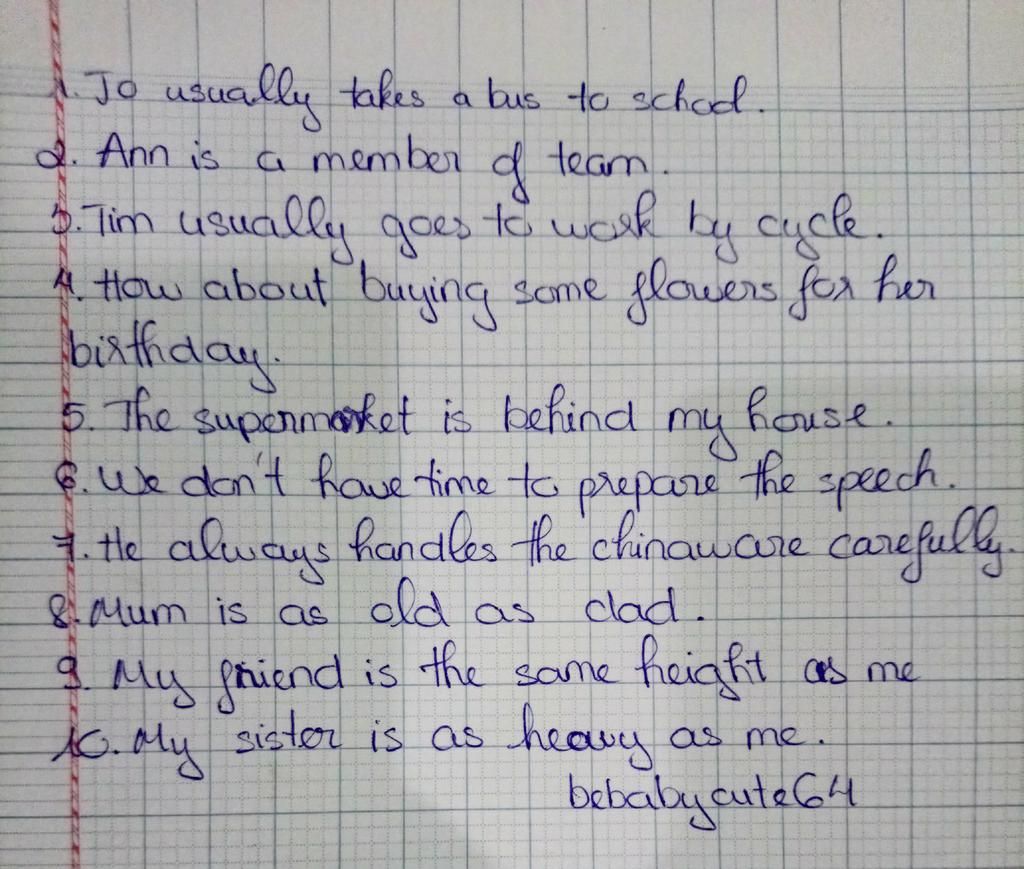 1. Jo usually takes a bus to school.
2. Ann is a member of team.
3. Tim usually goes to work by cycle.
4. How about buying some flowers for her
birthday.
5. The supermarket is behind my house.
6. We don't have time to prepare the speech.
7. He always handles the chinaware carefully.
8. Mum is as old as dad.
9. My friend is the same height as me
10. My sister is as heavy as me.
bebabycute64